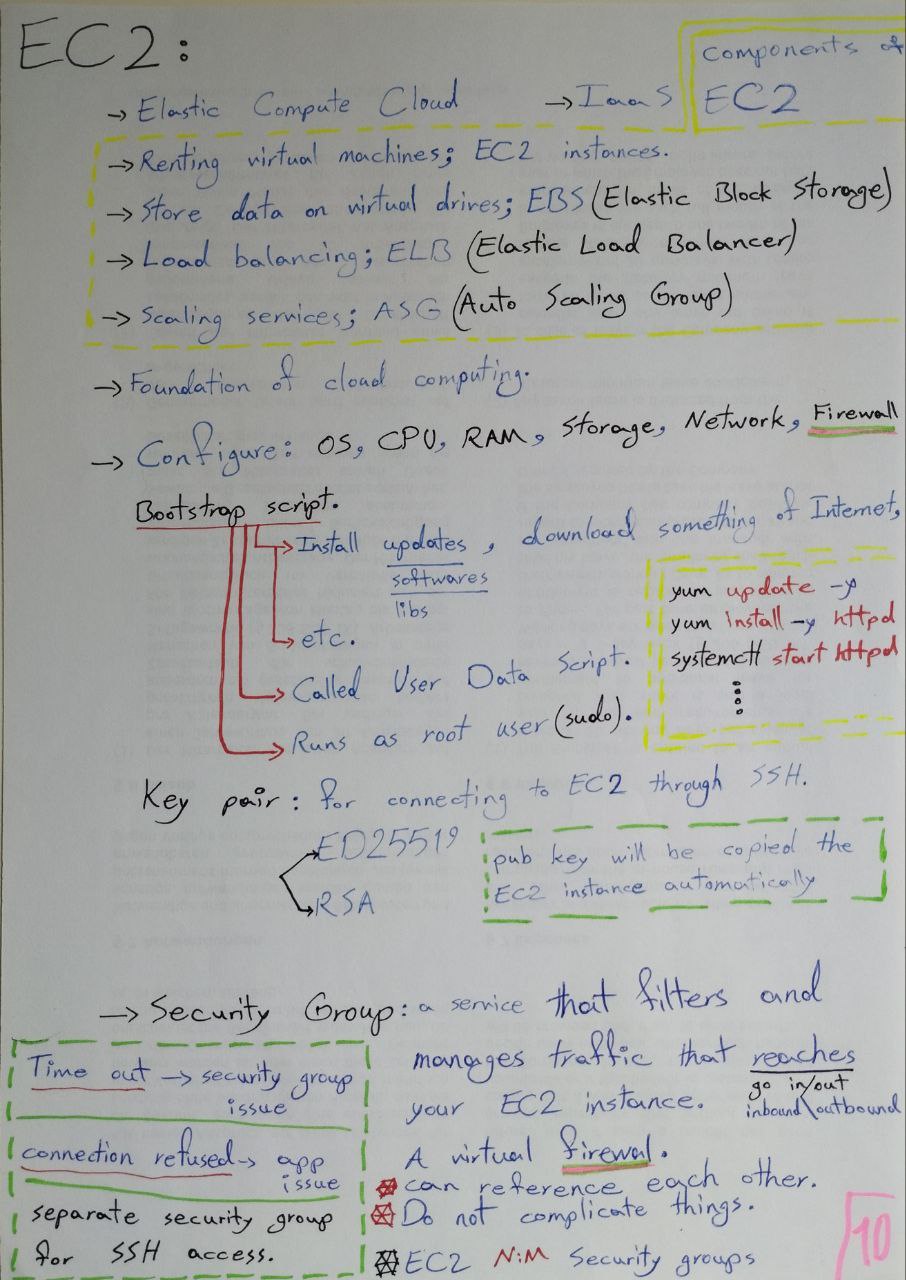 EC2:
→ Elastic Compute Cloud → IaaS
components of
EC2
→ Renting virtual machines; EC2 instances.
→ Store data on virtual drives; EBS (Elastic Block Storage)
→ Load balancing; ELB (Elastic Load Balancer)
→ Scaling services; ASG (Auto Scaling Group)
→ Foundation of cloud computing.
→ Configure: OS, CPU, RAM, Storage, Network, Firewall
Bootstrap script.
→ Install updates, download something of Internet,
softwares
libs
→ etc.
→ Called User Data Script.
→ Runs as root user (sudo).
yum update -y
yum install -y httpd
systemctl start httpd
Key pair: for connecting to EC2 through SSH.
→ ED25519
→ RSA
pub key will be copied the
EC2 instance automatically
→ Security Group: a service that filters and
manages traffic that reaches
go in/out
your EC2 instance. inbound\outbound
A virtual firewal.
can reference each other.
Do not complicate things.
EC2 N:M Security groups
Time out → security group
issue
connection refused → app
issue
separate security group
for SSH access.
10